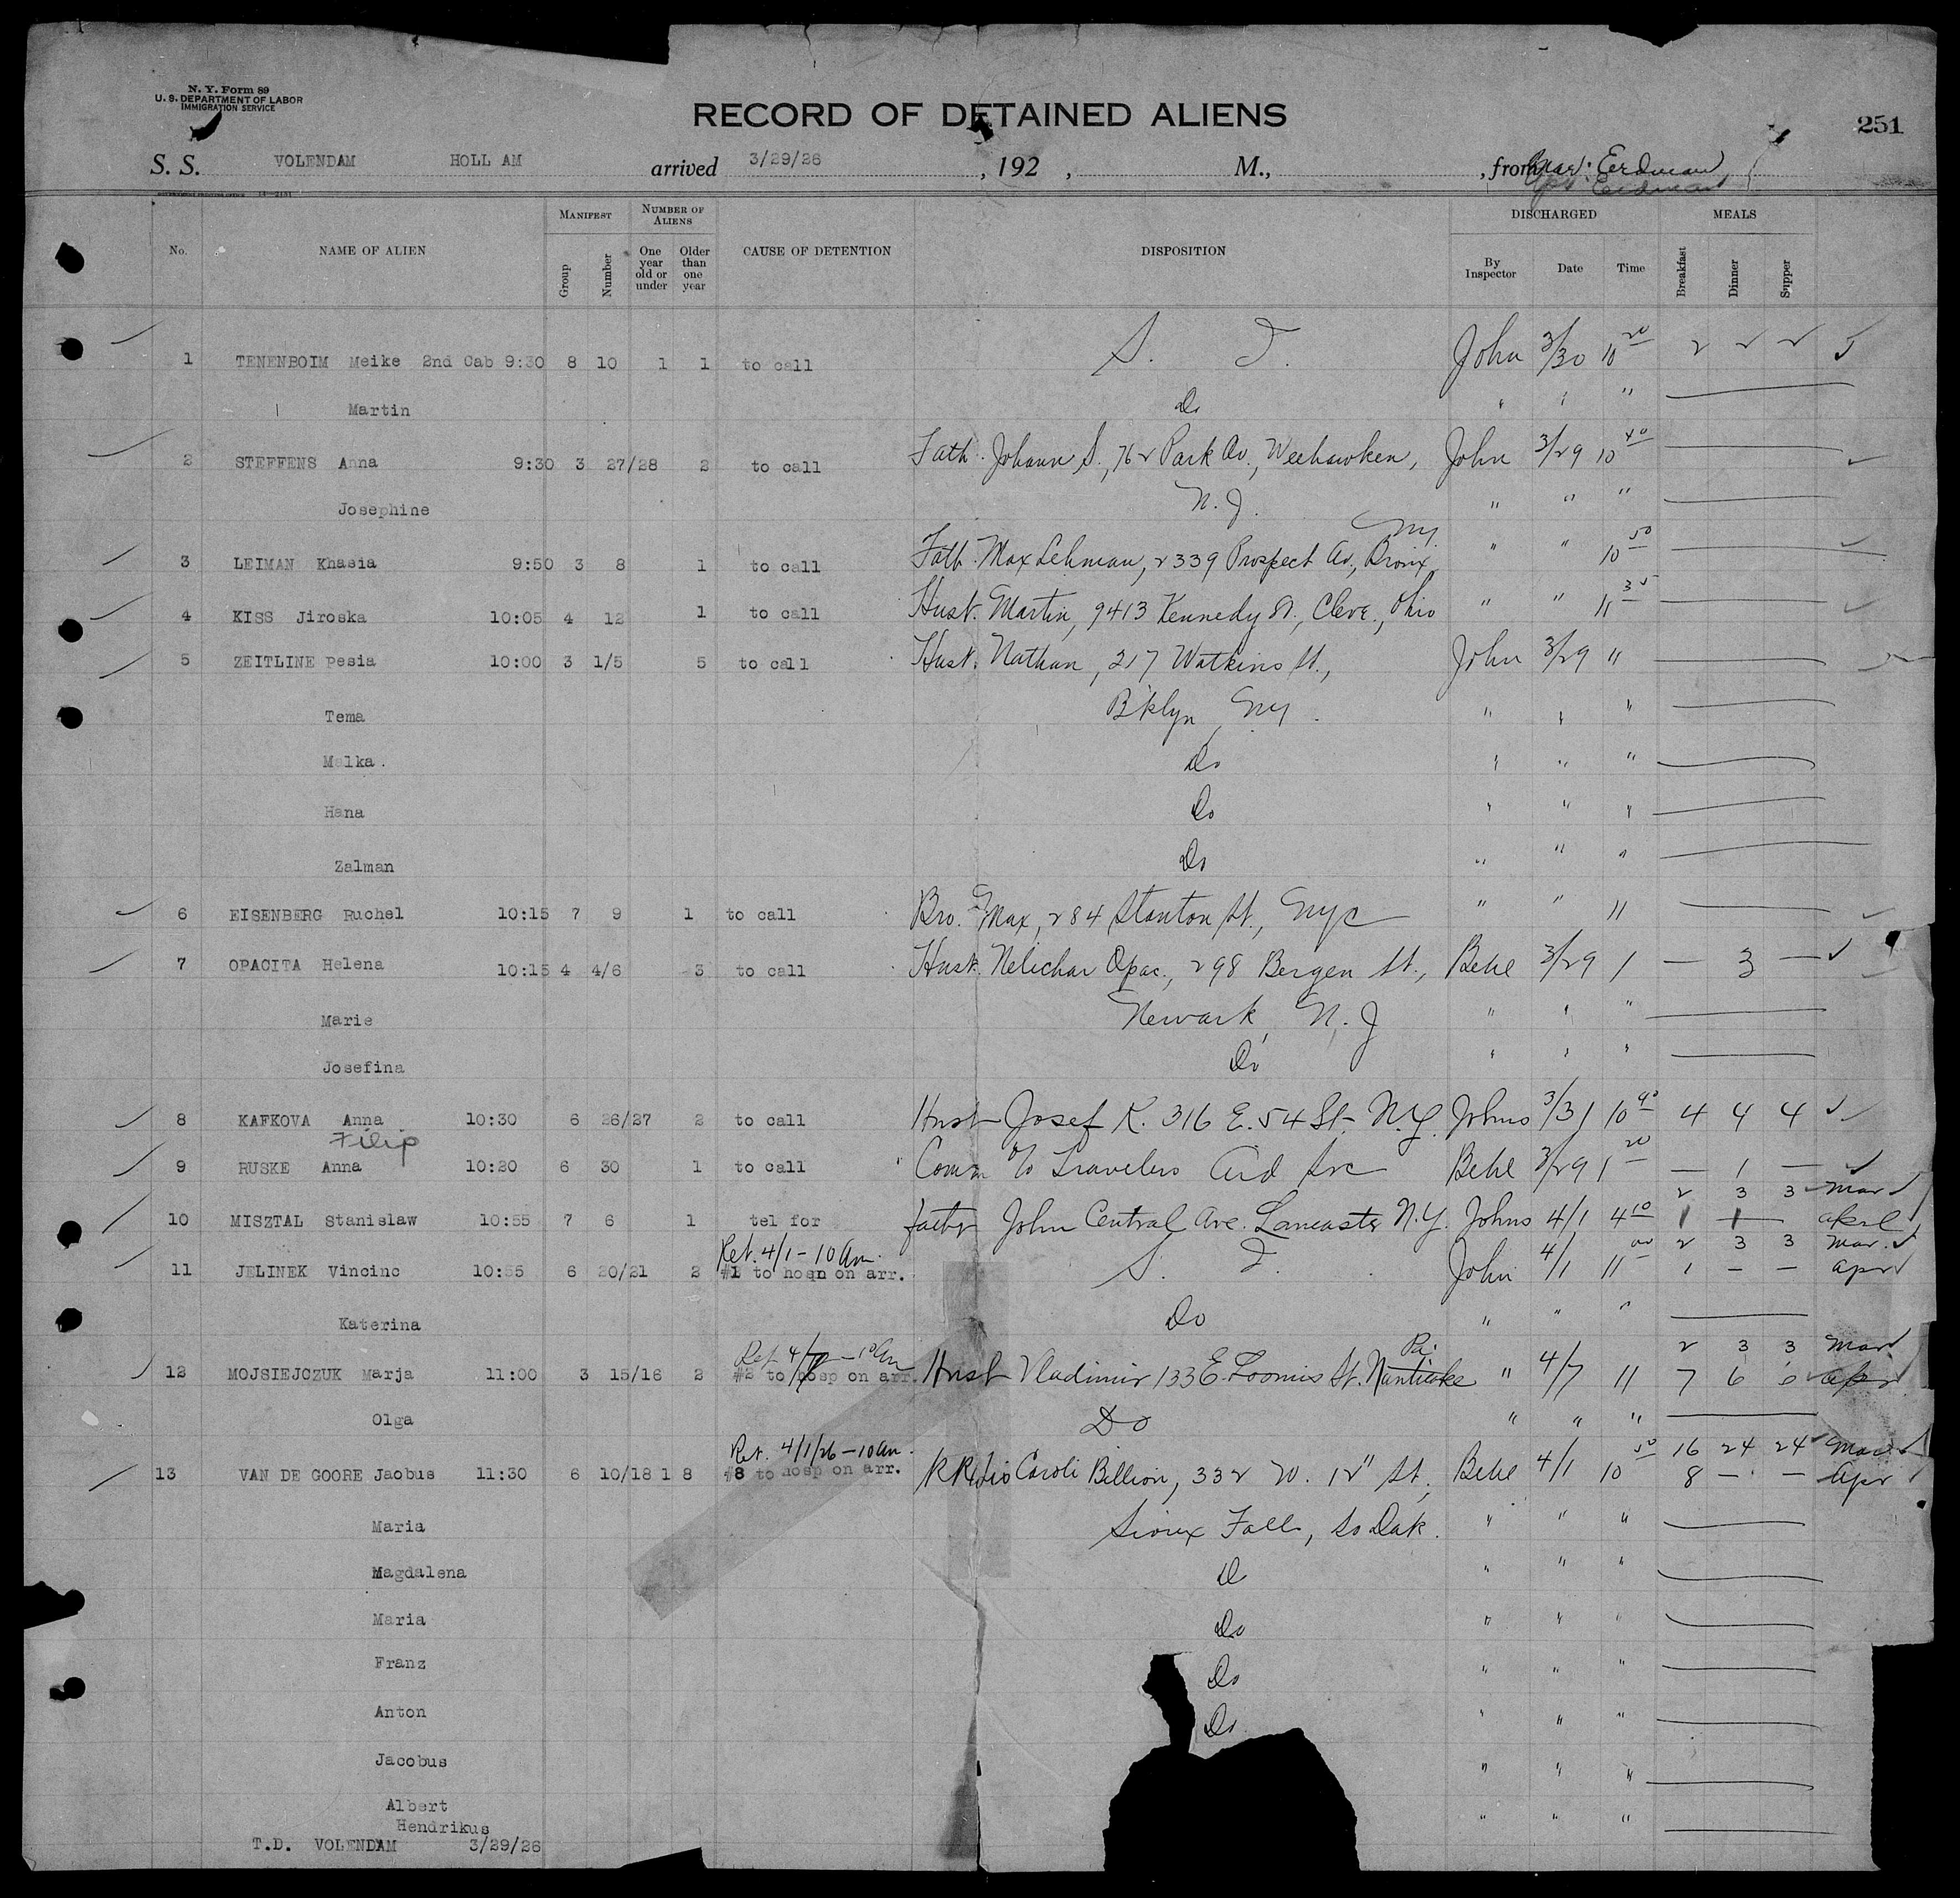 N. Y. Form 89
U. S. DEPARTMENT OF LABOR
IMMIGRATION SERVICE
RECORD OF DETAINED ALIENS
251
S. S. VOLENDAM HOLL AM arrived 3/29/26 , 192 , M., , from Eerdman
GOVERNMENT PRINTING OFFICE
No. NAME OF ALIEN MANIFEST Group Number NUMBER OF ALIENS One year old or under Older than one year CAUSE OF DETENTION DISPOSITION DISCHARGED By Inspector Date Time MEALS Breakfast Dinner Supper
1 TENENBOIM Meike 2nd Cab 9:30 8 10 1 1 to call S. I. John 3/30 10 20 2 2 2
Martin Do " " "
2 STEFFENS Anna 9:30 3 27/28 2 to call Fath. Johann S., 762 Park Av., Weehawken, John 3/29 10 40
Josephine N. J. " " "
3 LEIMAN Khasia 9:50 3 8 1 to call Fath. Max Lehman, 2339 Prospect Av., Bronx, NY. " " 10 50
4 KISS Jiroska 10:05 4 12 1 to call Husb. Martin, 9413 Kennedy St., Cleve., Ohio " " 11 35
5 ZEITLINE pesia 10:00 3 1/5 5 to call Husb. Nathan, 217 Watkins St., John 3/29 "
Tema B'klyn, NY. " " "
Malka. Do " " "
Hana Do " " "
Zalman Do " " "
6 EISENBERG Ruchel 10:15 7 9 1 to call Bro. Max, 284 Stanton St., NYC " " 11
7 OPACITA Helena 10:15 4 4/6 3 to call Husb. Melichar Opac., 298 Bergen St., Behl 3/29 1 — 3 —
Marie Newark, N. J " " "
Josefina Do " " "
8 KAFKOVA Anna 10:30 6 26/27 2 to call Husb Josef K. 316 E. 54 St. N.Y. Johns 3/31 10 40 4 4 4
Filip
9 RUSKE Anna 10:20 6 30 1 to call Comm c/o Travelers Aid Soc Behl 3/29 1 20 — 1 —
10 MISZTAL Stanislaw 10:55 7 6 1 tel for father John Central Ave. Lancaster N.Y. Johns 4/1 4 10 2 3 3 Mar
1 1 — April
Ret. 4/1 - 10 am.
11 JELINEK Vincinc 10:55 6 20/21 2 #1 to hosp on arr. S. I. John 4/1 11 00 2 3 3 Mar.
1 — — apr
Katerina Do " " "
Ret 4/7 - 10 am
12 MOJSIEJCZUK Marja 11:00 3 15/16 2 #2 to hosp on arr. Husb Vladimir 133 E. Loomis St. Nanticoke Pa. " 4/7 11 2 3 3 Mar
7 6 6 apr
Olga Do " " "
Ret. 4/1/26 - 10 am.
13 VAN DE GOORE Jaobus 11:30 6 10/18 1 8 #8 to hosp on arr. Caroli Billion, 332 W. 12" St., Behl 4/1 10 50 16 24 24 Mar.
8 — — Apr
Maria Sioux Falls, So Dak. " " "
Magdalena D " " "
Maria Do " " "
Franz Do " " "
Anton Do " " "
Jacobus " " "
Albert " " "
Hendrikus
T.D. VOLENDAM 3/29/26